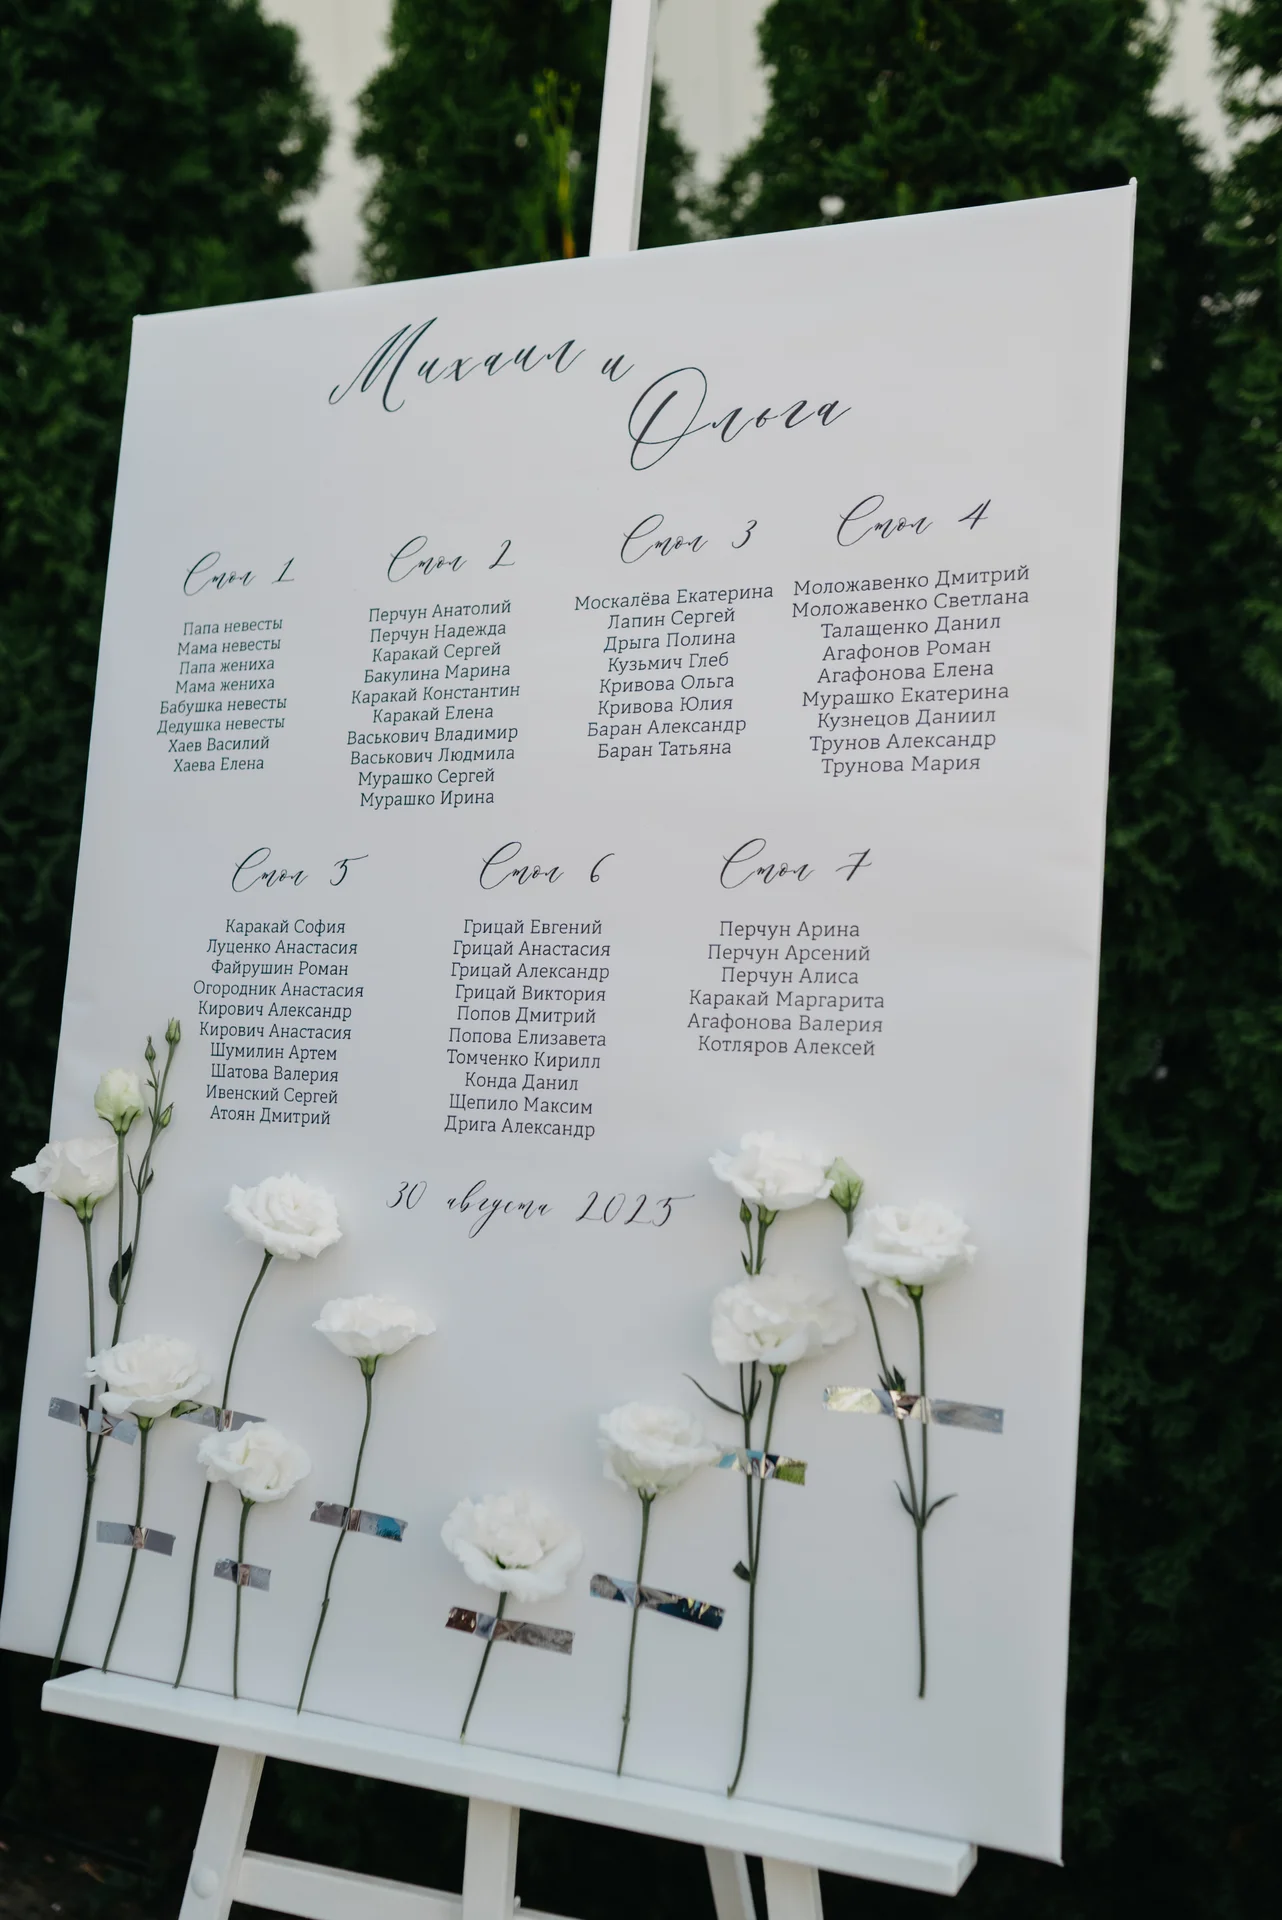 Михаил и
Ольга
Стол 1
Папа невесты
Мама невесты
Папа жениха
Мама жениха
Бабушка невесты
Дедушка невесты
Хаев Василий
Хаева Елена
Стол 2
Перчун Анатолий
Перчун Надежда
Каракай Сергей
Бакулина Марина
Каракай Константин
Каракай Елена
Васькович Владимир
Васькович Людмила
Мурашко Сергей
Мурашко Ирина
Стол 3
Москалёва Екатерина
Лапин Сергей
Дрыга Полина
Кузьмич Глеб
Кривова Ольга
Кривова Юлия
Баран Александр
Баран Татьяна
Стол 4
Моложавенко Дмитрий
Моложавенко Светлана
Талащенко Данил
Агафонов Роман
Агафонова Елена
Мурашко Екатерина
Кузнецов Даниил
Трунов Александр
Трунова Мария
Стол 5
Каракай София
Луценко Анастасия
Файрушин Роман
Огородник Анастасия
Кирович Александр
Кирович Анастасия
Шумилин Артем
Шатова Валерия
Ивенский Сергей
Атоян Дмитрий
Стол 6
Грицай Евгений
Грицай Анастасия
Грицай Александр
Грицай Виктория
Попов Дмитрий
Попова Елизавета
Томченко Кирилл
Конда Данил
Щепило Максим
Дрига Александр
Стол 7
Перчун Арина
Перчун Арсений
Перчун Алиса
Каракай Маргарита
Агафонова Валерия
Котляров Алексей
30 августа 2025